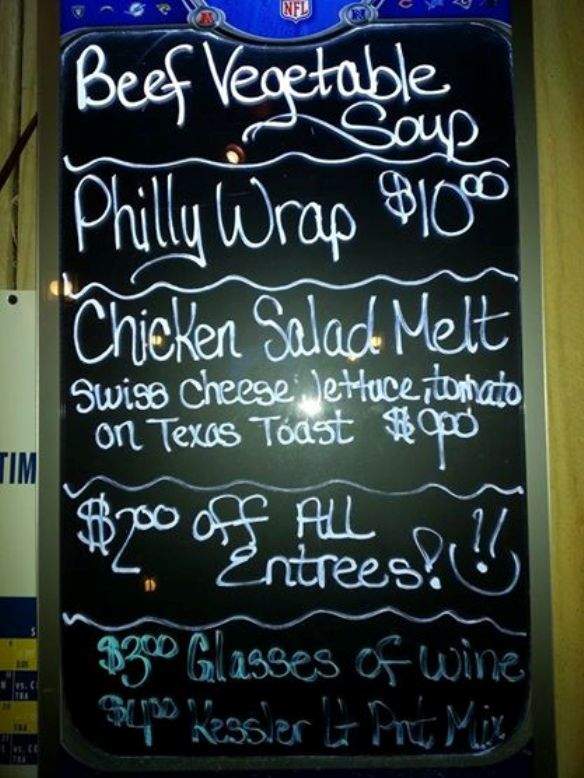 NFL
Beef Vegetable
Soup
Philly Wrap $10⁰⁰
Chicken Salad Melt
Swiss Cheese, lettuce, tomato
on Texas Toast $9⁰⁰
$2⁰⁰ off All
Entrees!!!
$3⁰⁰ Glasses of wine
$4⁰⁰ Kessler Lt Pnt Mix
TIM